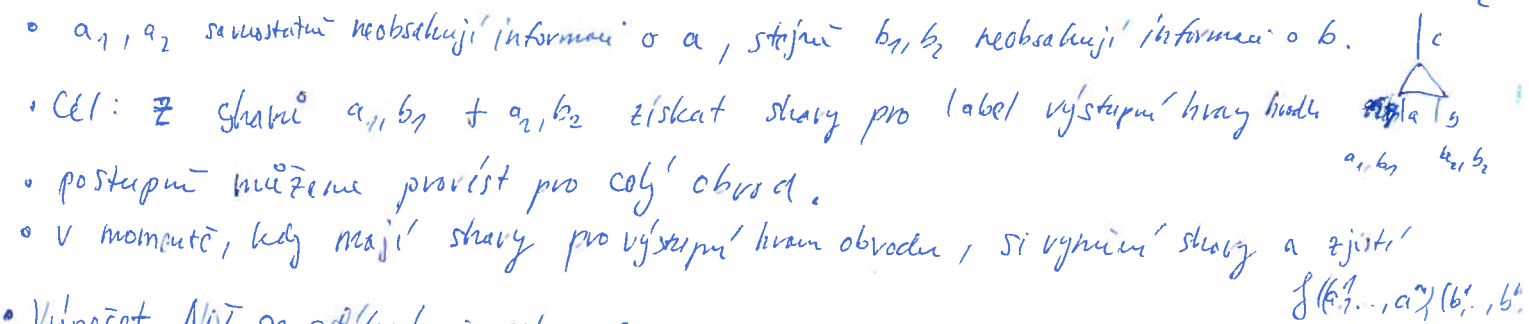 • a₁, a₂ samostatně neobsahují informaci o a, stejně b₁, b₂ neobsahují informaci o b.
c
• Cíl: z sharů a₁, b₁ + a₂, b₂ získat shary pro label výstupní hrany hradla
a b
a₁, b₁ a₂, b₂
• postupně můžeme provést pro celý obvod.
• V momentě, kdy mají shary pro výstupní hranu obvodu, si vymění shary a zjistí
f(a¹, ..., aⁿ)(b¹, .., bⁿ
• Výpočet